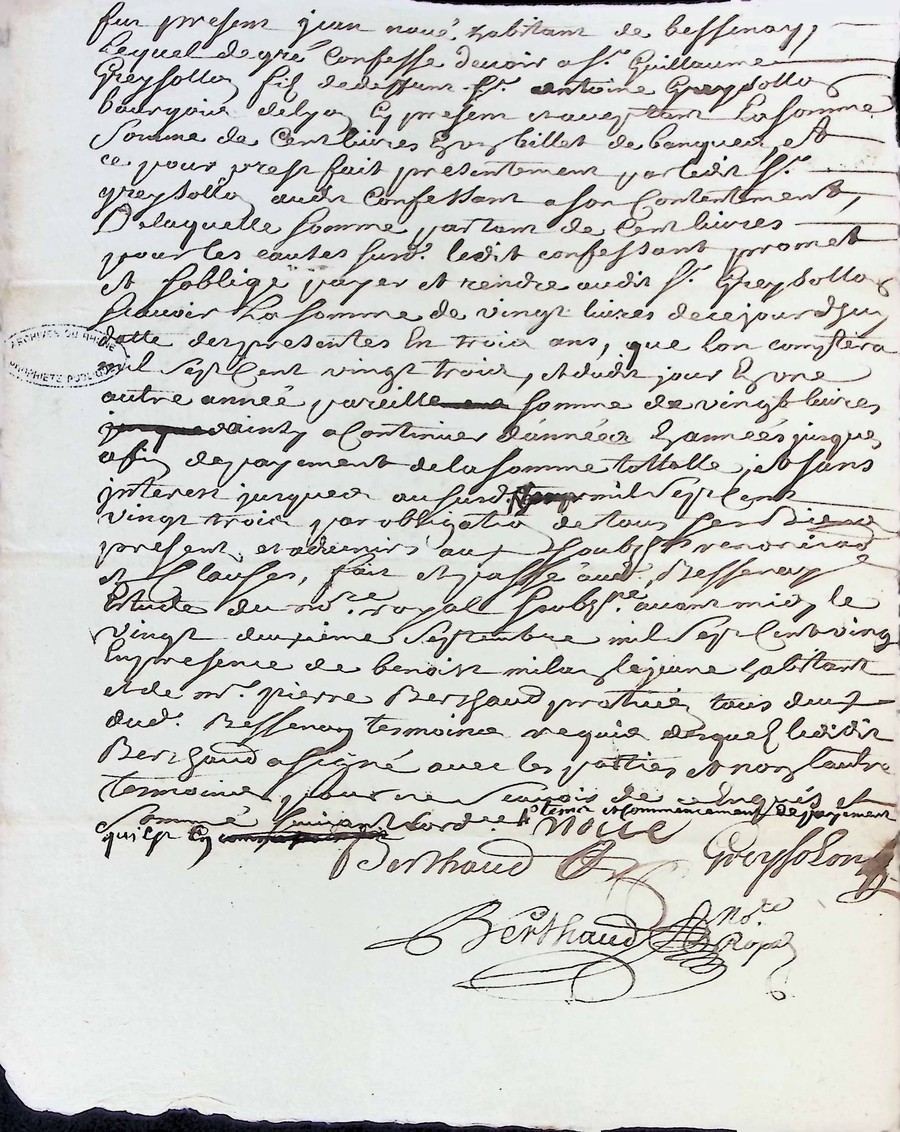 fut present jean noué habitant de bessenay,
Lequel de gré confesse devoir a Sr. Guillaume
Greysollon fils de deffunt Sr. antoine Greysollon
bourgois de lyon Cy present et aceptant La somme
Somme de Cent livres En un billet de banque, et
ce pour prest fait presentement par ledit Sr.
greysollon audit confessant a son Contentement,
De laquelle somme partant de Cent livres
pour les causes susd. ledit confessant promet
et soblige payer et rendre audit Sr. Greysollon
scavoir La somme de vingt livres de cejourdhuy
datte des presentes En trois ans, que lon comptera
mil Sept Cent vingt trois, et dudit jour En une
autre année pareille somme de vingt livres
dainsy a Continuer d'années En années jusques
a fin de payement de la somme tottalle, et sans
interest jusques au susd. mil Sept Cent
vingt trois par obligation de tous ses Biens
present et advenirs aux
et Clauses, fait et passé aud. Bessenay
Estude du nore. royal soubsne. avant midy le
vingt deuxième Septembre mil Sept Cent vingt
En presence de benoist milan lejeune habitant
et de mr. pierre Berthaud tous deux
dud. Bessenay tesmoins requis desquels ledit
Berthaud a signé avec les parties et non lautre
tesmoins pour ne Scavoir de Enquis et
Sommé Suivant Lordce. temoin et commencement de payement
qui est En
noüe
Berthaud Greysolon
Berthaud Nore.
Royal
ARCHIVES DU RHONE
PROPRIETE PUBLIQUE